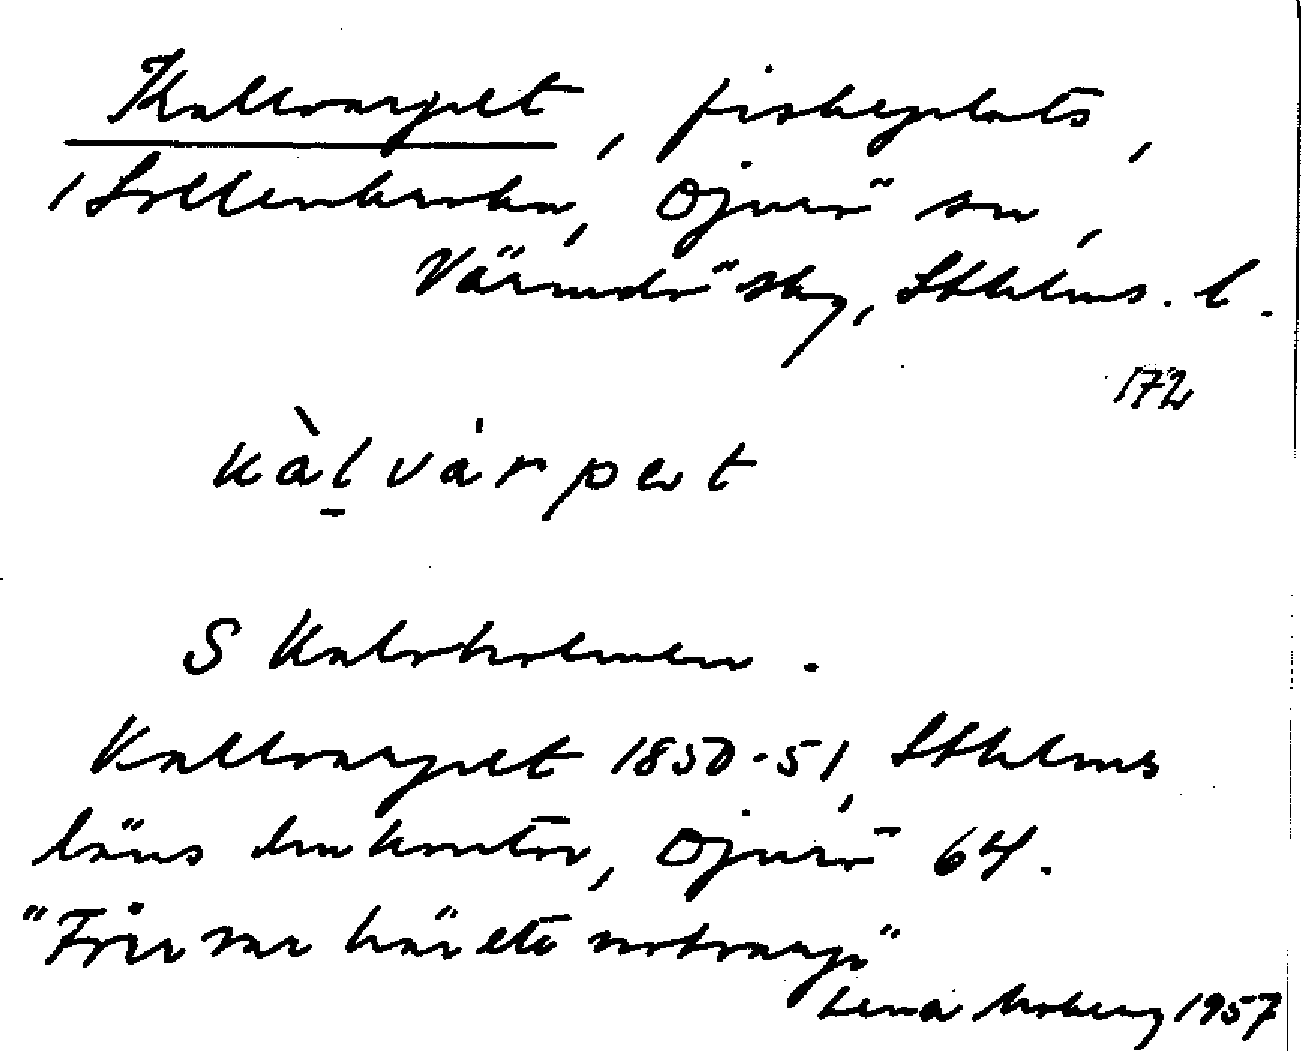 Kallvarpet, fiskeplats,
i Sollenkroka, Djurö sn,
Värmdö skg, Sthlms. l.
172
kàl̠vàrpet
S Kalvholmen.
Kallvarpet 1850-51, Sthlms
läns lmkontor, Djurö 64.
"Förr var här ett notvarp"
Lena Moberg 1957